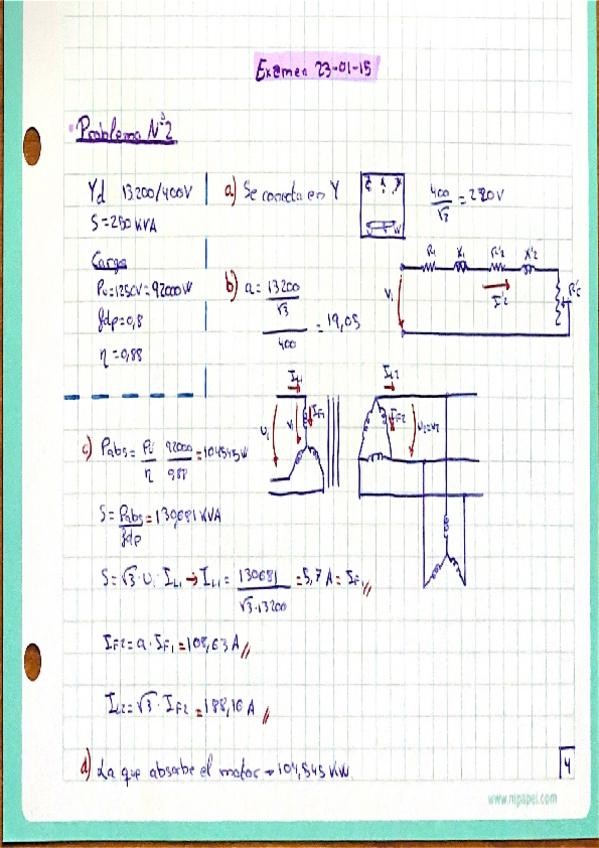 Examen 23-01-15
Problema Nº2
Yd 13200/400V
S=250 KVA
Carga
Pu=125CV=92000W
fdp=0,8
η=0,88
a) Se conecta en Y
400/√3 = 230V
b) a= 13200/√3 / 400 = 19,05
R1 X1 R'2 X'2
V1 I'2 R'c
IL1 IL2
U1 V1 IF1 IF2 U2=V2
c) Pabs= Pu/η 92000/0,88 =104545W
S= Pabs/fdp =130,681 KVA
S=√3·U1·IL1→IL1= 130681/√3·13200 =5,7A=IF1//
IF2=a·IF1=108,63A//
IL2=√3·IF2=188,16A//
d) La que absorbe el motor → 104,545 KW
4
www.nipapel.com